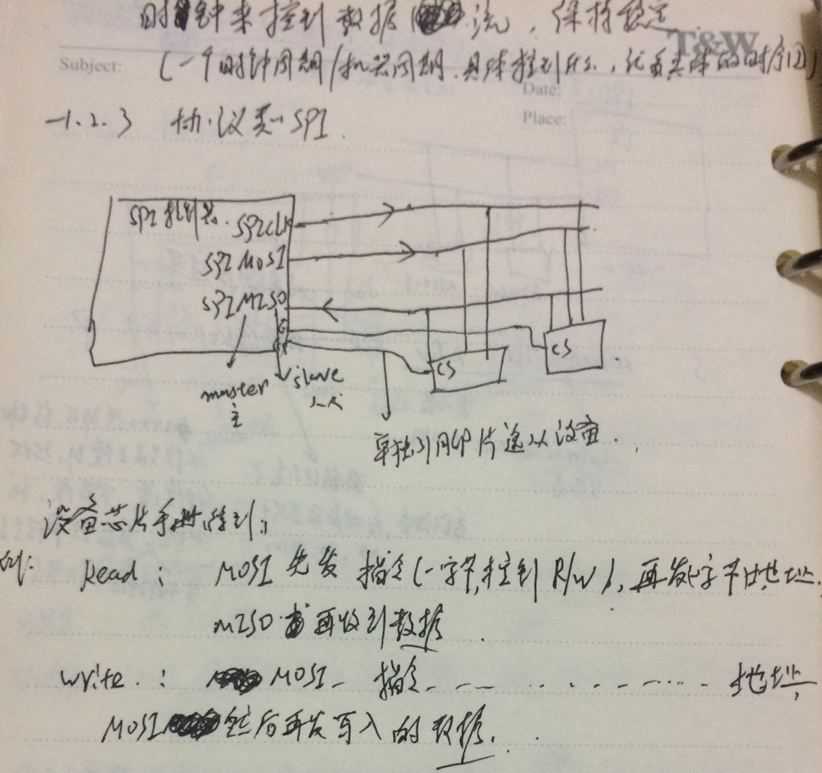 时钟来控制数据流,保持稳定
T&W
Subject:
(一个时钟周期/机器周期.具体控制
Date:
Place:
-1.2.3 协议类-SPI.
SPI控制器.
SPICLK
SPI MOSI
SPI MISO
CS
CS
master
主
slave
从
单独引脚片选从设备.
设备芯片手册
例:
Read: MOSI先发 指令(一字节,控制R/W),再发 字节地址.
MISO 再收到数据.
write: MOSI- 指令------ 地址,
MOSI 然后再发写入的数据.